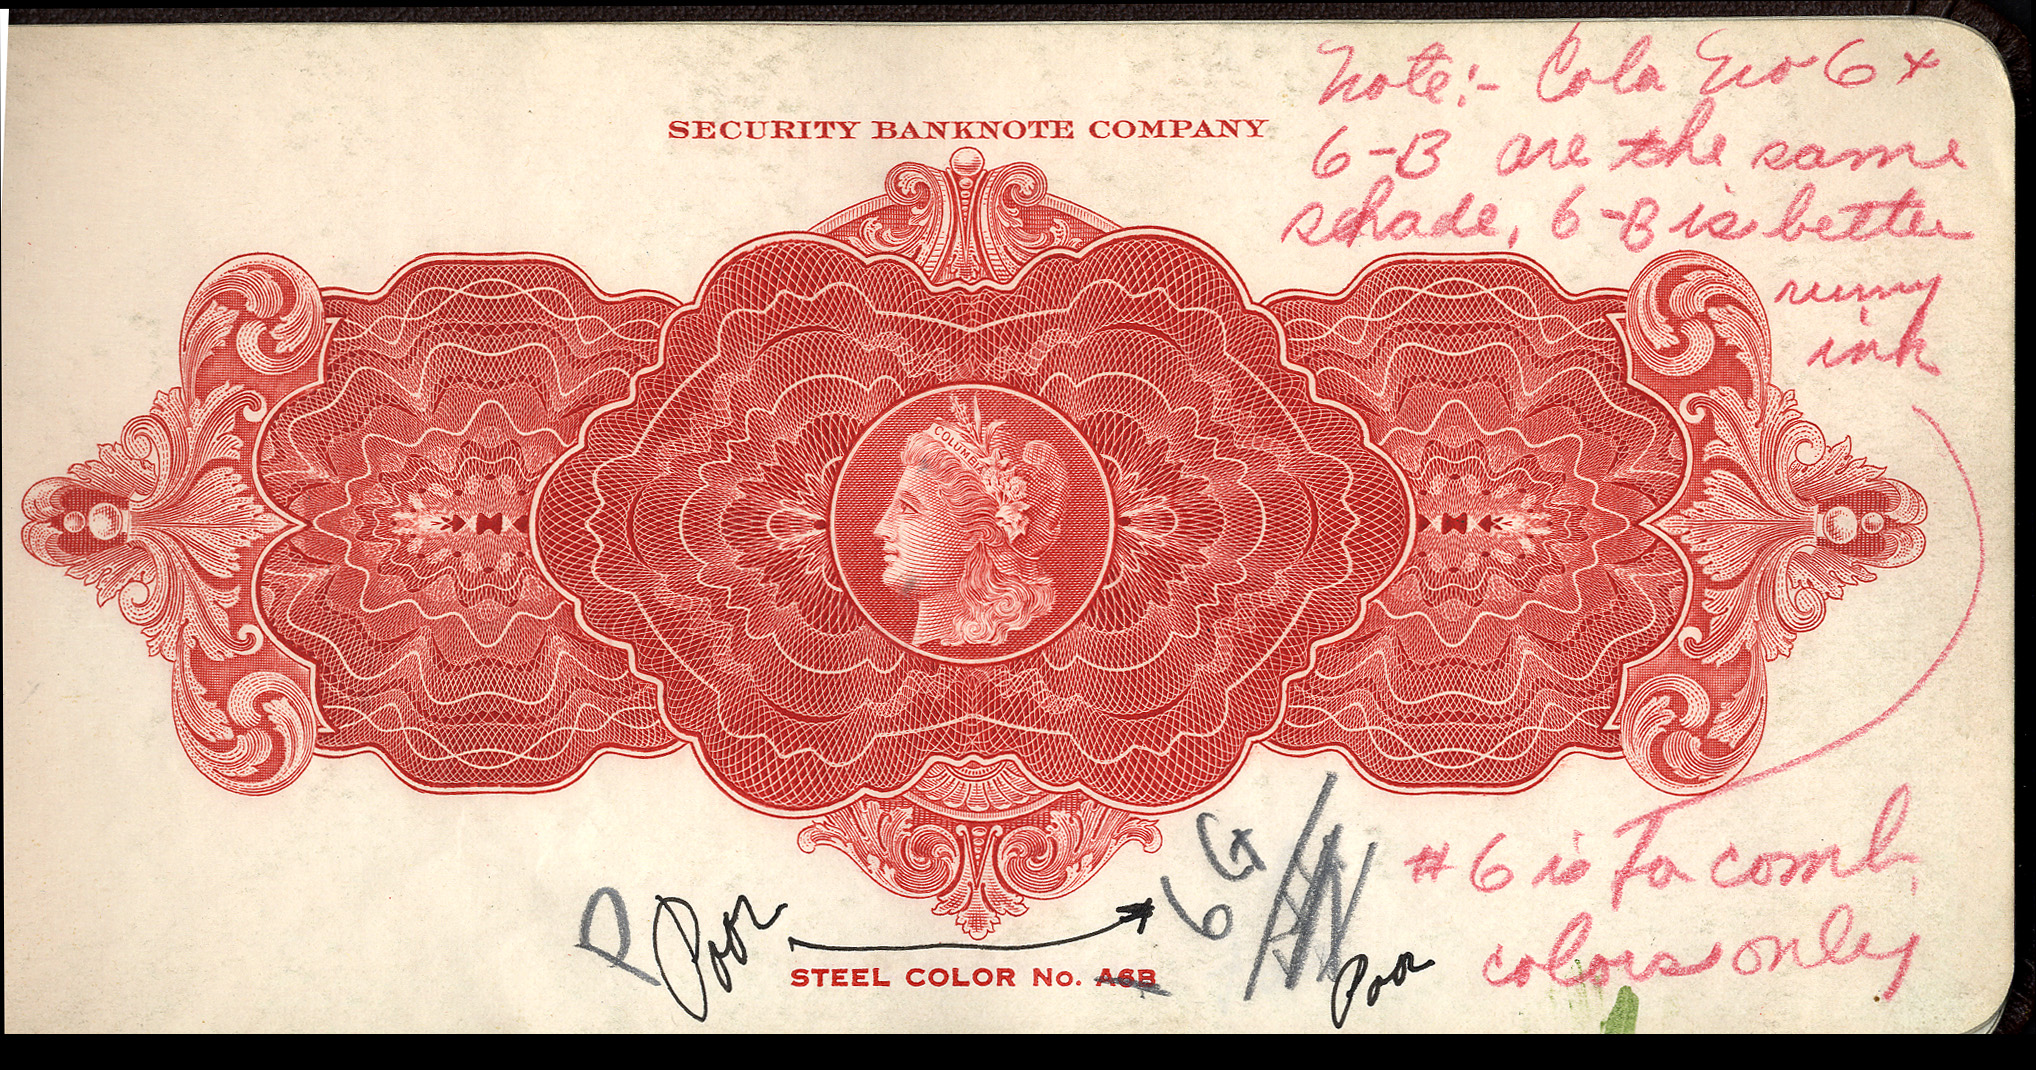 SECURITY BANKNOTE COMPANY
Note:- Color No 6 +
6-B are the same
shade, 6-B is better
runny
ink
COLUMBIA
# 6 is For comb.
colors only
P Poor
6 G
Poor
STEEL COLOR No. A6B